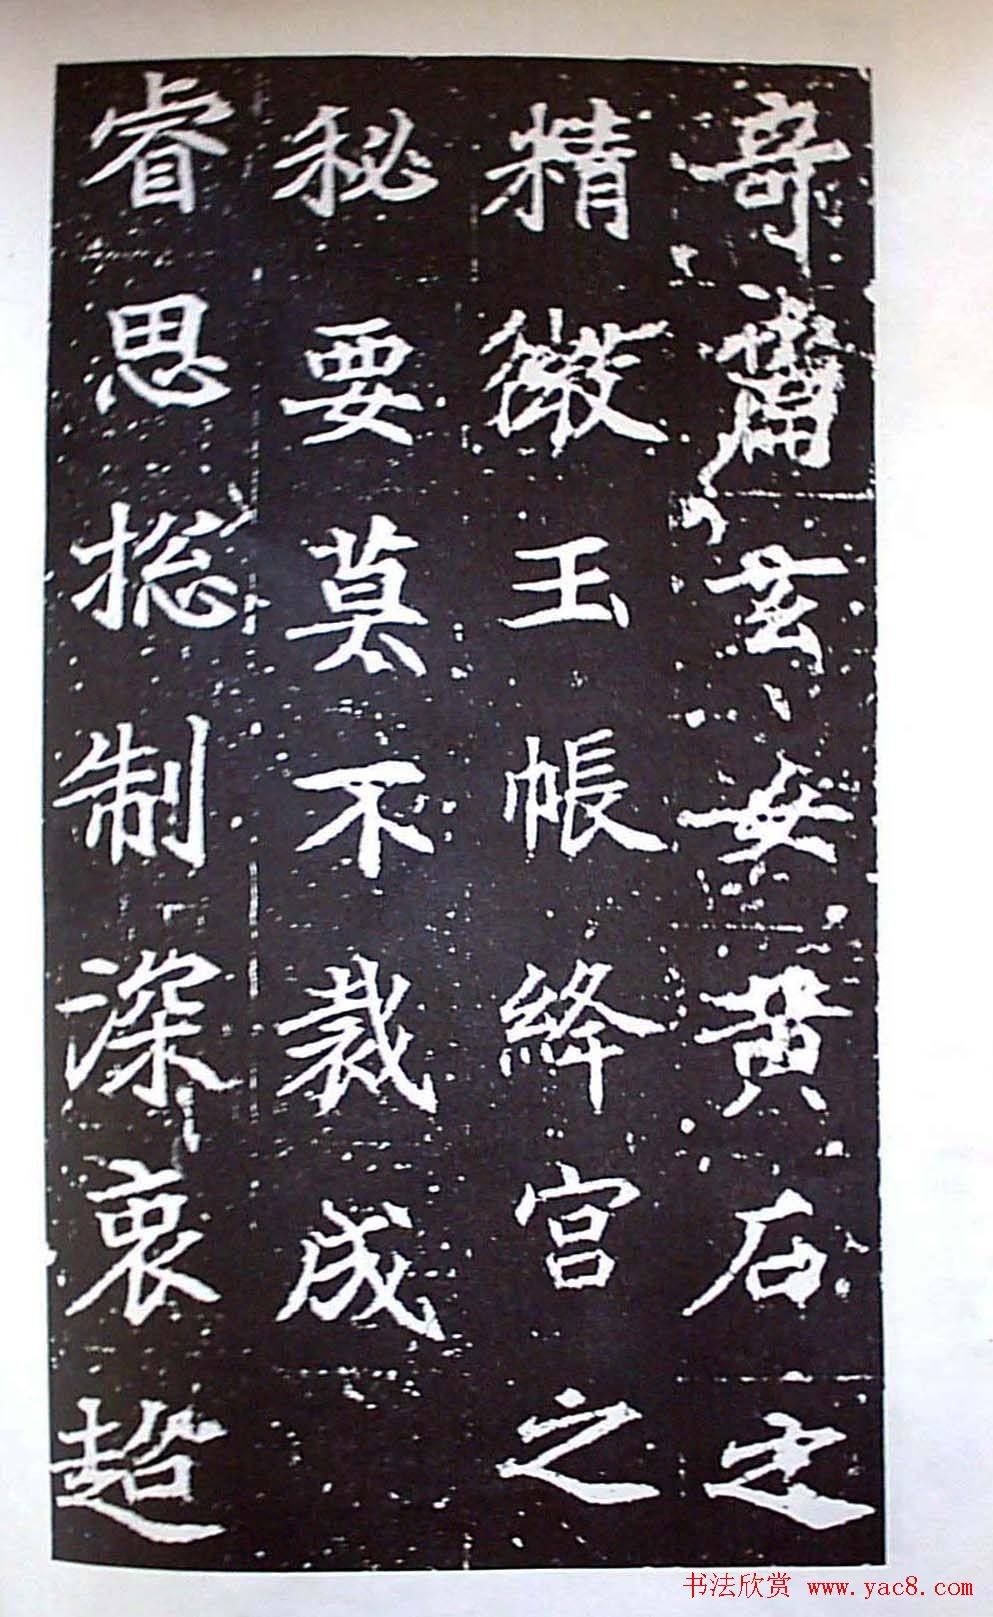 奇篇玄女黄石之
精微玉帳絳宫之
秘要莫不裁成
睿思揔制深衷超
书法欣赏 www.yac8.com